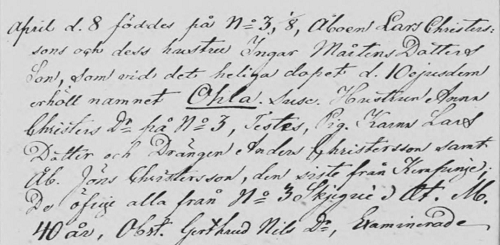 April d. 8 föddes på No 3, 1/8, Åboen Lars Christers-
sons och dess hustru Ingar Mårtens Dotters
Son, som vid det heliga dopet d. 10 ejusdem
erhöll namnet Ohla. Susc. Hustrun Anna
Christers Dr på No 3, Testes, Pig. Karna Lars
Dotter och Drängen Anders Christersson samt
Åb. Jöns Christersson, den siste från
De öfrige alla från No 3 At. M.
40 år, Obst. Gertrud Nils Dr, Examinerade